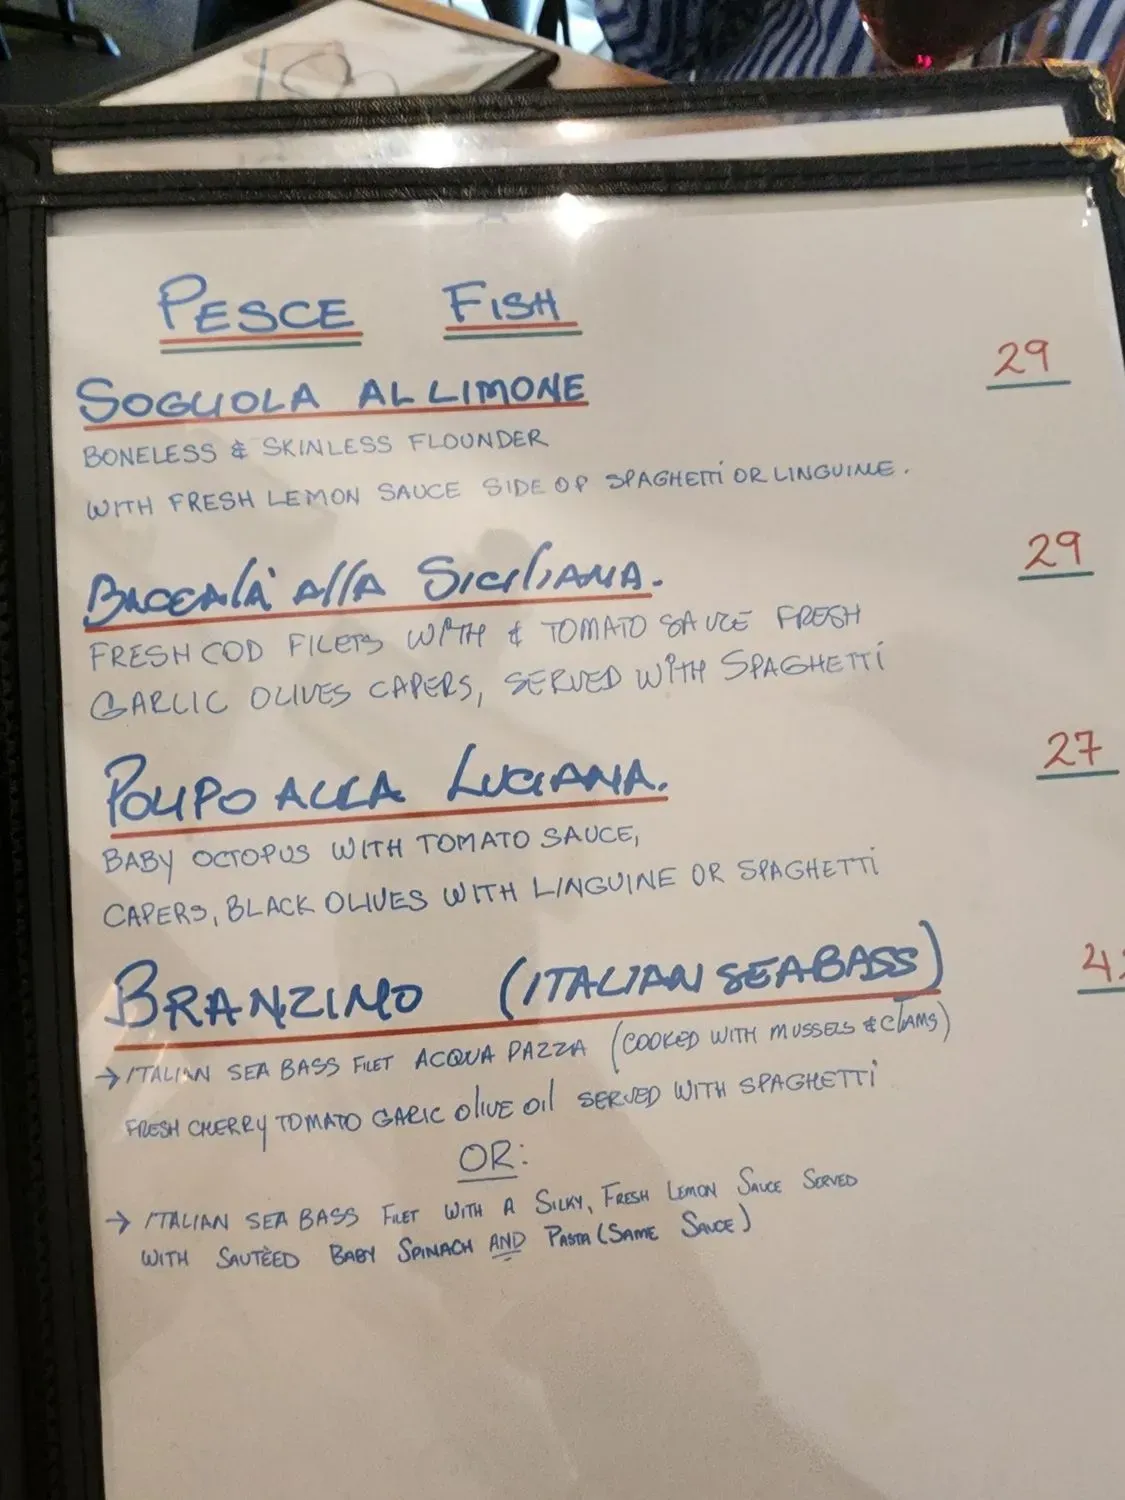 PESCE FISH
SOGLIOLA AL LIMONE 29
BONELESS & SKINLESS FLOUNDER
WITH FRESH LEMON SAUCE SIDE OF SPAGHETTI OR LINGUINE.
BACCALÀ ALLA SICILIANA. 29
FRESH COD FILETS WITH & TOMATO SAUCE FRESH
GARLIC OLIVES CAPERS, SERVED WITH SPAGHETTI
POLIPO ALLA LUCIANA. 27
BABY OCTOPUS WITH TOMATO SAUCE,
CAPERS, BLACK OLIVES WITH LINGUINE OR SPAGHETTI
BRANZINO (ITALIAN SEABASS)
→ ITALIAN SEA BASS FILET ACQUA PAZZA (COOKED WITH MUSSELS & CLAMS)
FRESH CHERRY TOMATO GARLIC OLIVE OIL SERVED WITH SPAGHETTI
OR:
→ ITALIAN SEA BASS FILET WITH A SILKY, FRESH LEMON SAUCE SERVED
WITH SAUTÈED BABY SPINACH AND PASTA (SAME SAUCE)